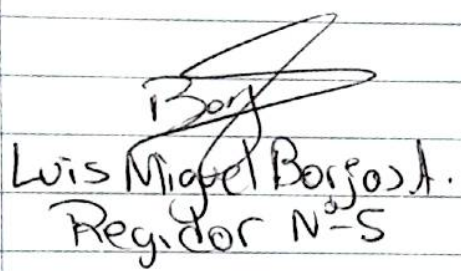 Luis Miguel Borjas A.
Regidor Nº-5